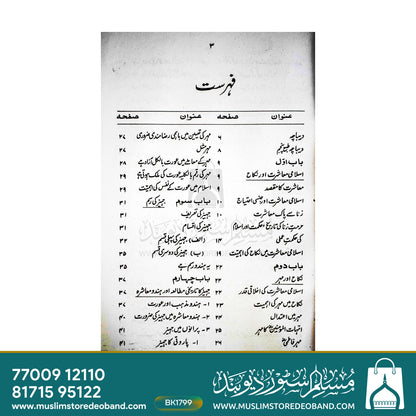 ۳
فہرست
عنوان صفحہ عنوان صفحہ
دیباچہ ۶
دیباچہ طبع پنجم ۸
باب اوّل ۹
اسلامی معاشرت اور نکاح ۹
معاشرت کا مقصد ۹
اسلامی معاشرت اور جنسی احتیاج ۱۰
زنا سے پاک معاشرت ۱۰
حرمتِ زنا کی تاریخ، حکمت اور اسلام
کی حکمتِ عملی ۱۴
اسلامی معاشرت میں نکاح کی اہمیت ۱۹
باب دوم ۲۲
نکاح اور مہر ۲۲
اسلامی معاشرت کی اخلاقی قدر ۲۲
نکاح میں مہر کی اہمیت ۲۳
مہر میں اعتدال ۲۴
امہات المؤمنین کا مہر ۲۵
مہر فاطمی ۲۶
مہر کی تعیین میں باہمی رضامندی ضروری ۲۷
مہر مثل ۲۷
مہر کے معاملے میں عورت بالکل آزاد ہے ۲۸
مہر کی رقم بالکلیہ عورت کی ملک ہوتی ہے ۲۹
اسلام میں عورت کے نفس کی اہمیت ۲۹
باب سوم جہیز کی رسم ۳۱
جہیز کی تعریف ۳۱
جہیز کی اقسام ۳۱
(الف) جہیز کی پہلی قسم ۳۲
(ب) جہیز کی دوسری قسم ۳۵
یہ ہندو رسم ہے ۳۵
باب چہارم
جہیز کا تاریخی مطالعہ اور ہندو معاشرہ ۳۷
۱- ہندو مذہب اور عورت ۳۷
۲- ہندو معاشرہ میں جہیز کی ضرورت ۴۰
۳- پرانوں میں جہیز ۴۱
۱- پاروتی کا جہیز ۴۱
77009 12110
81715 95122
www.muslimstoredeoband.com
BK1799
مسلم اسٹور دیوبند
WWW.MUSLIMSTOREDEOBAND.COM